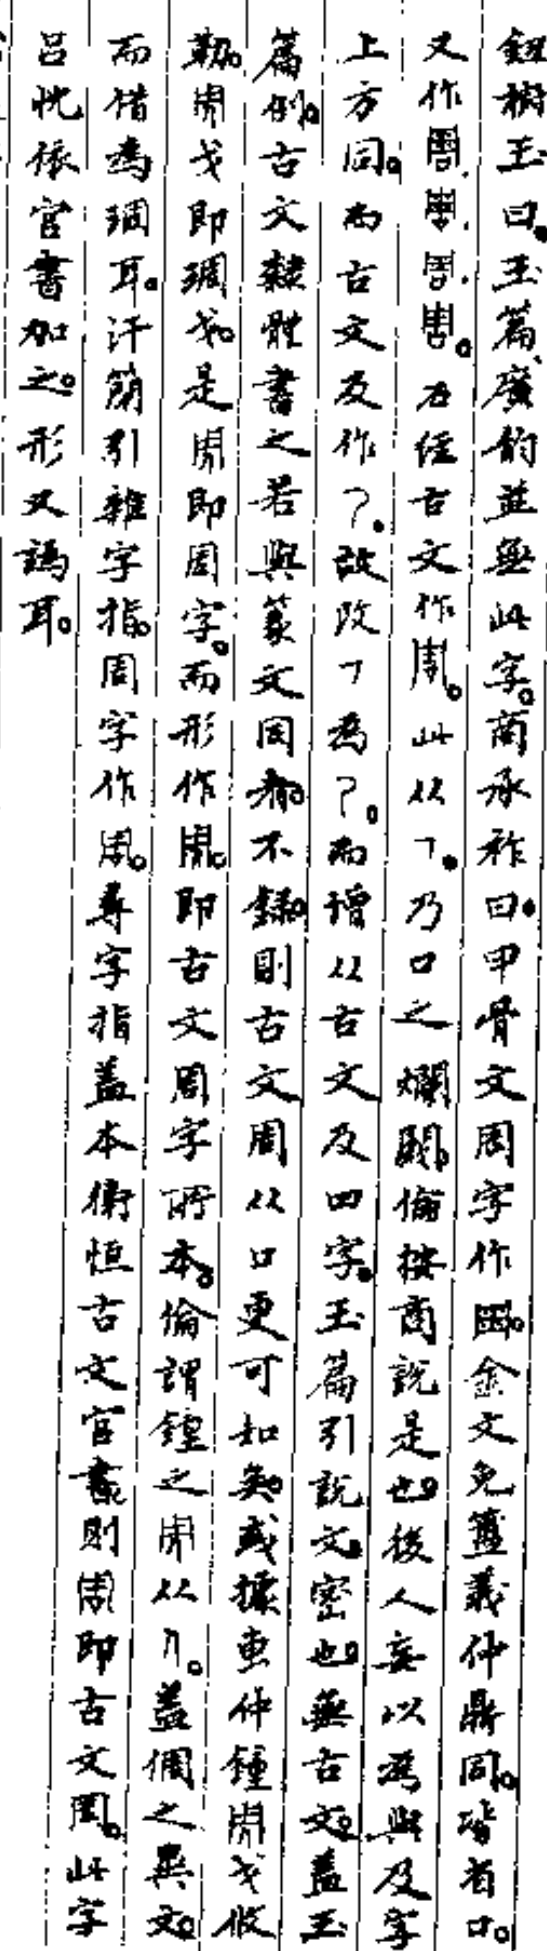 鈕樹玉曰。玉篇、廣韵並無此字。商承祚曰。甲骨文周字作𤰔。金文免簠義仲鼎同。皆省口。
又作。石經古文作。此从㇆。乃口之爛闕。倫按商說是也。後人妄以為與及字
上方同。而古文及作㇇。故改㇆為㇇。而增从古文及四字。玉篇引說文。密也。無古文。蓋玉
篇例。古文隸體書之若與篆文同者。不錄。則古文周从口更可知矣。或據叀仲鐘戈彼
勒。戈即琱戈。是即周字。而形作。即古文周字所本。倫謂鐘之从。蓋倜之異文。
而借為琱耳。汗簡引雜字指。周字作。尋字指蓋本衛恒古文官書則周即古文周。此字
呂忱依官書加之。形又譌耳。